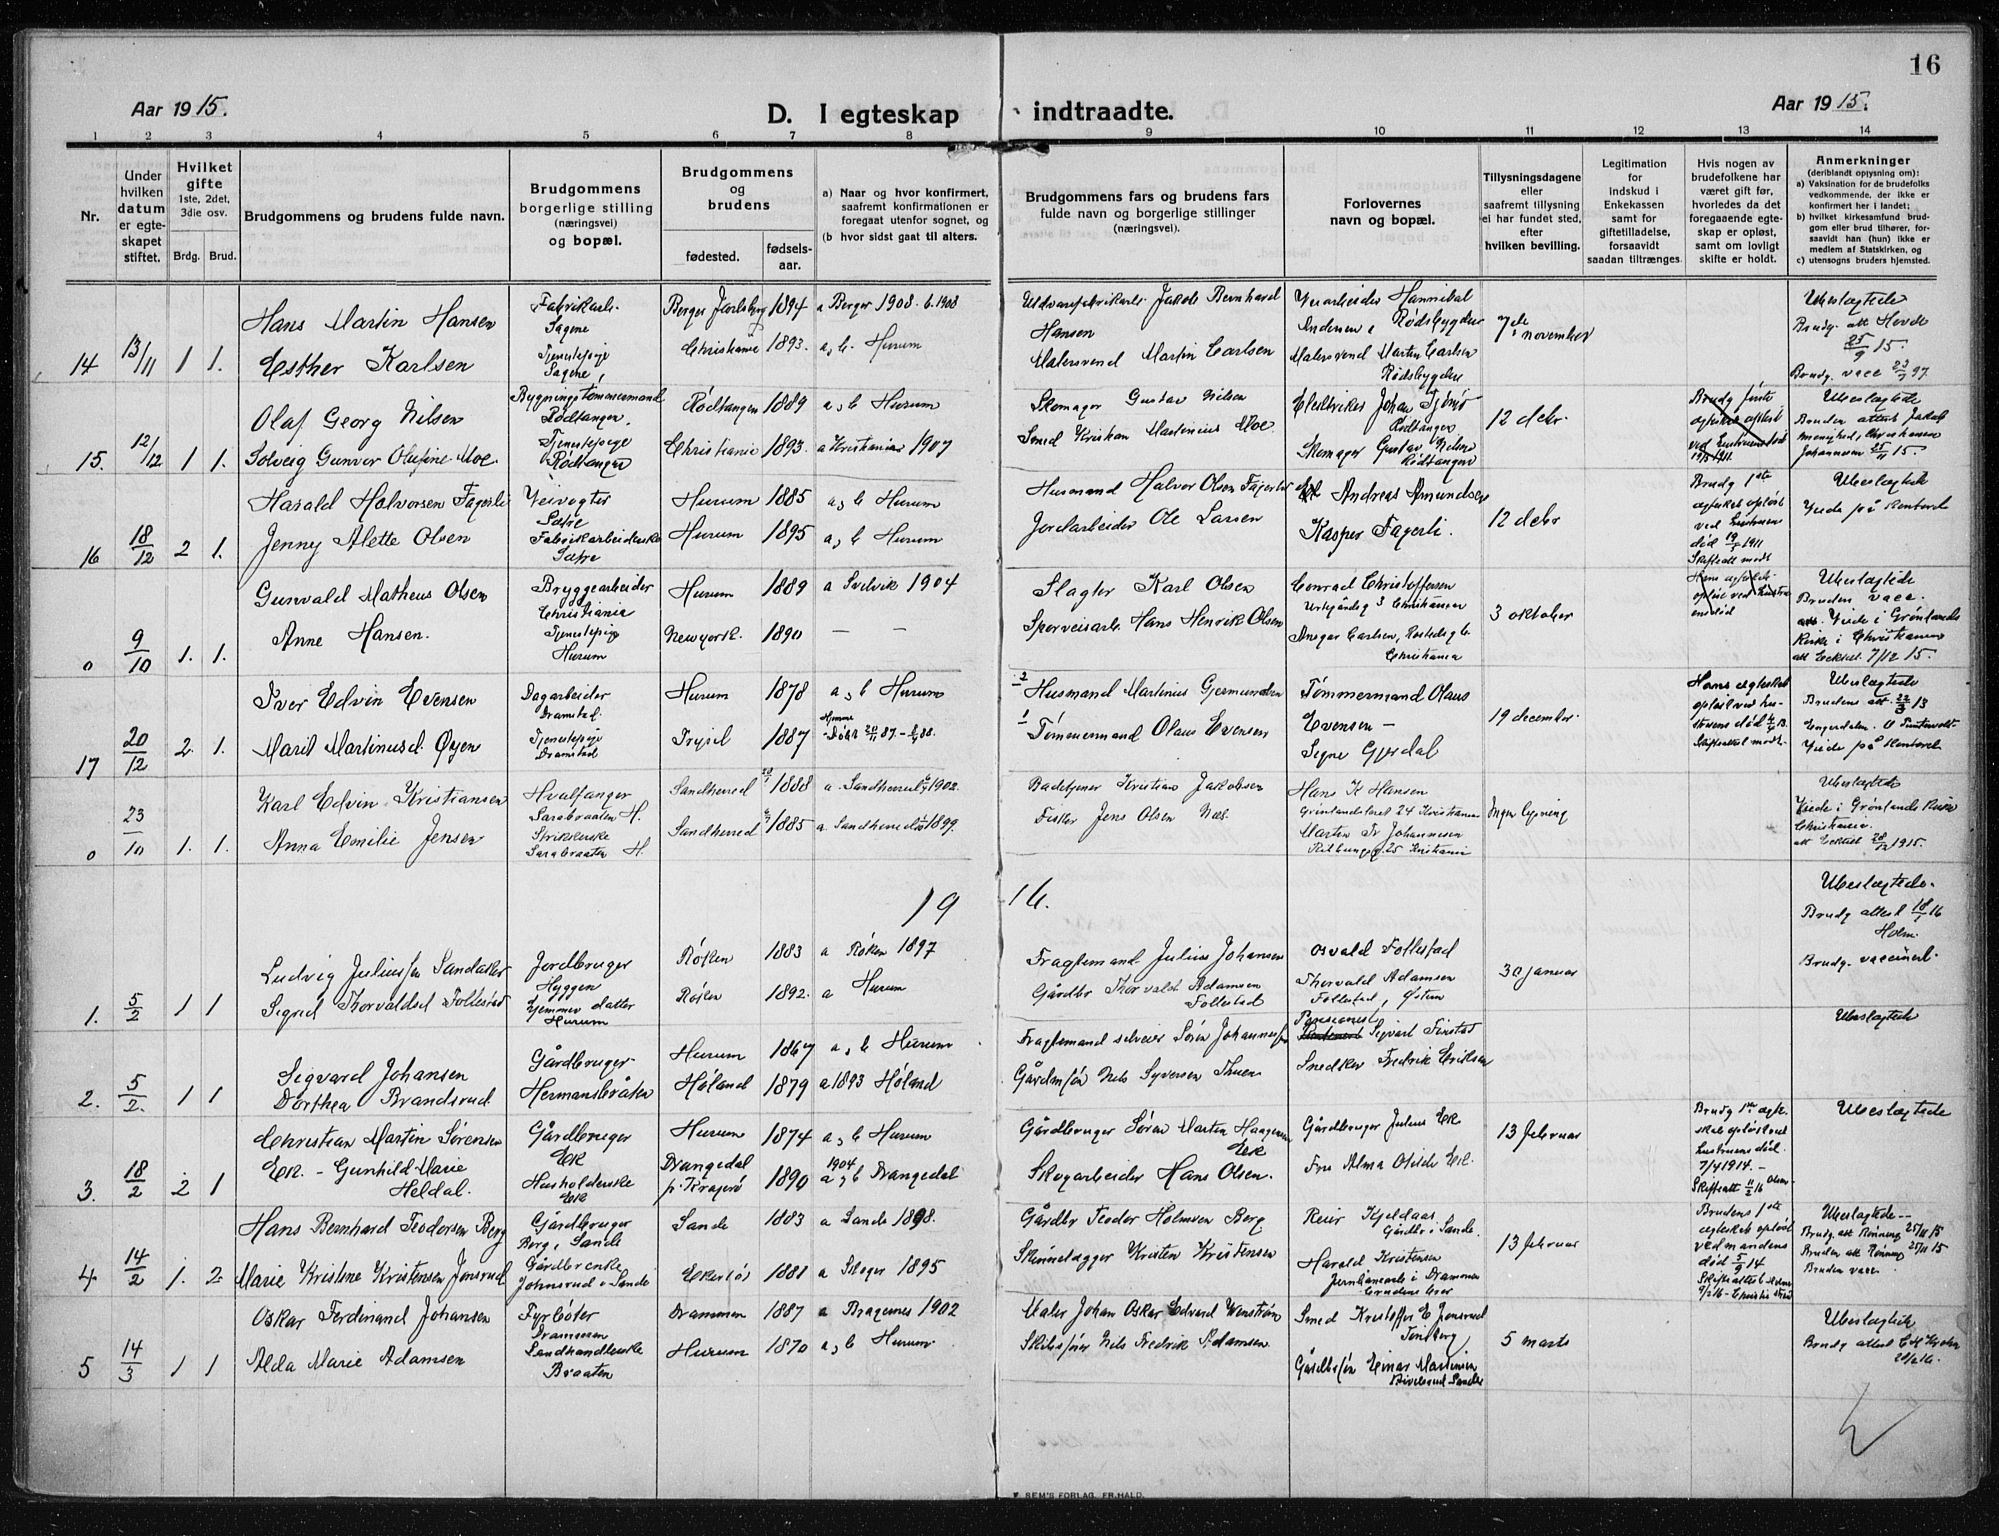 16
Aar 1915.
D. I egteskap indtraadte.
Aar 1915.
1 2 3 4 5 6 7 8 9 10 11 12 13 14
Nr.
Under hvilken datum er egteskapet stiftet.
Hvilket gifte
1ste, 2det, 3die osv.
Brdg. Brud.
Brudgommens og brudens fulde navn.
Brudgommens borgerlige stilling (næringsvei) og bopæl.
Brudgommens og brudens
fødested.
fødselsaar.
a) Naar og hvor konfirmert, saafremt konfirmationen er foregaat utenfor sognet, og
(b hvor sidst gaat til alters.
Brudgommens fars og brudens fars fulde navn og borgerlige stillinger (næringsvei).
Forlovernes navn og bopæl.
Tillysningsdagene eller saafremt tillysning ei har fundet sted, efter hvilken bevilling.
Legitimation for indskud i Enkekassen samt for giftetilladelse, forsaavidt saadan tiltrænges
Hvis nogen av brudefolkene har været gift før, hvorledes da det foregaaende egteskap er opløst, samt om lovligt skifte er holdt.
Anmerkninger
(deriblandt oplysning om):
a) Vaksination for de brudefolks vedkommende, der ikke er konfirmert her i landet;
b) hvilket kirkesamfund brudgom eller brud tilhører, forsaavidt han (hun) ikke er medlem af Statskirken, og
c) utensogns bruders hjemsted.
14 13/11 1 1.
Hans Martin Hansen
Esther Karlsen
Fabrikarb. Sagene
Tjenestepige Sagene
Berger Jarlsberg 1894 a Berger 1908 b. 1908
Christiania 1893. a, b. Hurum
Jakob Bernhard Hansen
Malersvend Martin Carlsen
Hannibal Andersen, Rødsbygden
Malersvend Martin Carlsen Rødsbygden
7de november
Ubeslægtede
Brudg. att Hovde 25/9 15.
Brudg. vacc 23/7 97.
15. 12/12 1 1.
Olaf Georg Nilsen
Solveig Gunvor Olufine Moe
Bygningstømmermand Rødtangen
Tjenestepige Rødtangen
Rødtangen 1889 a, b Hurum
Christiania 1893. a Kristiania 1907
Skomager Gustav Nilsen
Smed Kristian Martinius Moe
Johan Tjømø Rødtangen
Skomager Gustav Nilsen Rødtangen
12 debr.
Ubeslægtede
Bruden attest Jakob menighed, Christiania
Johannesen 25/11 15.
16 18/12 2 1.
Harald Halvorsen Fagerli
Jenny Alette Olsen
Veivogter Sætre
Fabrikarbeiderske Sætre
Hurum 1885 a, b Hurum
Hurum 1895 a, b Hurum
Husmand Halvor Olsen Fagerli
Jordarbeider Ole Larsen
Andreas Amundsen
Kasper Fagerli.
12 debr
Brudg 1ste egteskab opløst ved hustruens død 19/5 1911
Skifteatt modt
Ubeslægtede
Viede på Kontoret
0 9/10 1. 1.
Gunvald Matheus Olsen
Anne Hansen.
Bryggearbeider Christiania
Tjenestepige Hurum
Hurum 1889 a Svelvik 1904
New york. 1890 — —
Slagter Karl Olsen
Sporveisarb. Hans Henrik Olsen
Conrad Christoffersen
Urtegårdsg 3 Christiania
Ansgar Carlsen, Rostedsg 6 Christiania
3 oktober
Ubeslægtede
Bruden vacc.
Viede i Grønlands Kirke i Christiania
att Ecktst. 7/12 15.
17 20/12 2. 1.
Iver Edvin Evensen
Marit Martinusd. Øyen
Dagarbeider Dramstad.
Tjenestepige Dramstad
Hurum 1878 a, b Hurum
Trysil 1887 Hjemmedøbt 20/11 87 -
Husmand Martinius Gjermundsen
Tømmermand Olaus Evensen
Tømmermand Olaus Evensen —
Signe Gjerdal
19 december.
Hans egteskab opløst ved hustruens død 4/4 13.
Skifteattest modt.
Ubeslægtede
Brudens att. 22/3 13
Engerdalen.
Viede på Kontoret
0 23/10 1. 1.
Karl Edvin Kristiansen
Anna Emilie Jensen
Hvalfanger Sarabraaten H.
Strikkerske Sarabraaten H
Sandherred 1888 a. Sandherred 1902.
Sandherred 1885 a. Sandherred 1899.
Badetjener Kristian Jakobsen
Fisker Jens Olsen Næs.
Hans K Hansen
Grønlandsleret 24 Kristiania
Martin Fr Johannesen
25 Kristiania
Ingen lysning
Ubeslægtede
Viede i Grønlands Kirke Christiania.
att Ecktst 28/12 1915.
1916.
1. 5/2 1 1
Ludvig Juliussen Sandaker
Sigrid Thorvaldsd Follestad
Jordbruger Hyggen
Hjemmev datter Hurum
Røken 1883 a Røken 1897
Røken 1892. a Hurum
Fragtemand Julius Johansen
Gårdbr Thorvald Adamsen Follestad
Osvald Follestad
Thorvald Adamsen Follestad, Østern
30 januar
Ubeslægtede.
Brudg attest 18/1 16 Holm.
Brudg. vaccinert.
2. 5/2. 1 1
Sigvard Johansen
Dorthea Brandsrud
Gårdbruger. Hermansbråten
Hurum 1867 a, b Hurum
Høland 1879 a 1893 Høland
Fragtemand Søren Johannessen
Gårdmsøn Nils Syversen Thuen
Pensionist Sigvart Finstad
Snedker Fredrik Eriksen
Ubeslægtede
3. 18/2 2 1
Christian Martin Sørensen
Ek. - Gunhild Marie Heldal.
Gårdbruger Ek
Husholderske Ek
Hurum 1874 a, b Hurum
Drangedal p. Kragerø 1890 1904 a, b Drangedal
Gårdbruger Søren Martin Haagensen Ek
Skogarbeider Hans Olsen.
Gårdbruger Julius Ek
Fru Alma Otilde Ek.
13 februar
Brudg 1ste egteskab opløst ved hustruens død. 7/4 1914. —
Skifteatt 11/2 16
Ubeslægtede
4. 14/2 1. 2.
Hans Bernhard Teodorsen Berg
Marie Kristine Kristensen Jonsrud
Gårdbruger Berg i Sande
Gårdbrenke Johnsrud i Sande
Sande 1883 a Sande 1898.
1881 a Skoger 1895
Gårdbr Teodor Holmsen Berg
Skinnelægger Kristen Kristensen
Reier Kjeldaas Gårdbr i Sande.
Harald Kristensen
Jernbanearb i Drammen
brudens bror
13 februar
Brudens 1ste egteskab opløst ved mandens død 5/9 14
Ubeslægtede --
Brudg. att Rønning 25/11 15
Bruden att Rønning 25/11 15
Bruden vacc.
5 14/3 1 1
Oskar Ferdinand Johansen
Alda Marie Adamsen
Fyrbøter Drammen
Landhandlerske Braaten
Drammen 1887 a Bragernes 1902
Hurum 1870 a, b Hurum.
Maler Johan Oskar Edvard Wenstrøm
Skibsfører Nils Fredrik Adamsen.
Smed Kristoffer E Jonsrud Tønsberg
Gårdbrsøn Einar Martinsen
5 marts
Ubeslægtede
F. SEM'S FORLAG, FR.HALD.